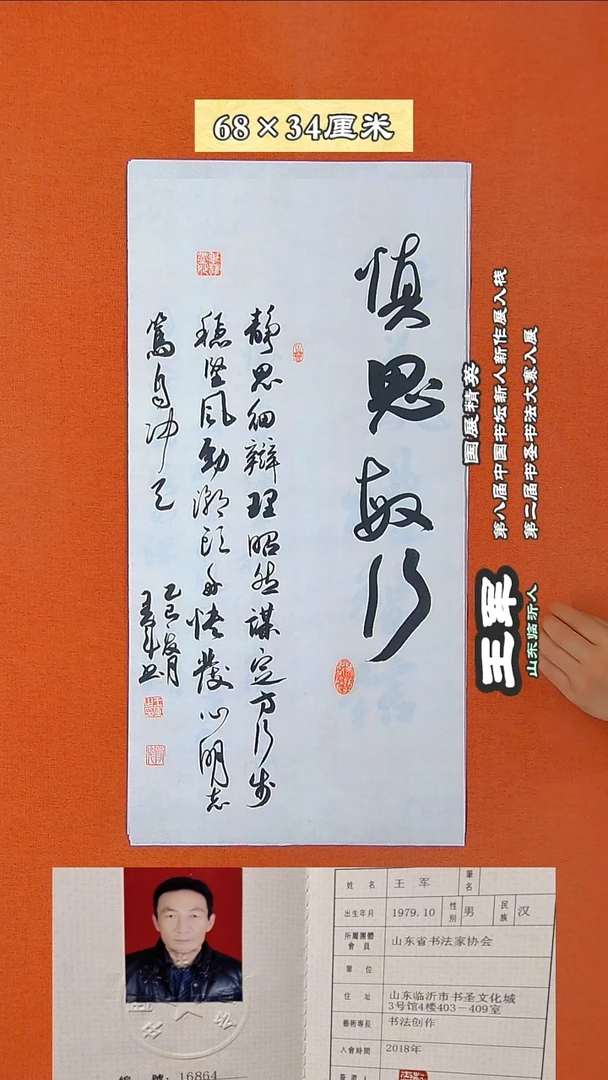 68×34厘米
慎思敏行
静思细辩理昭然谋定方行步
稳坚风动潮头舟快发心明志
笃自冲天
乙巳
王军书
国展精英
第八届中国书坛新人新作展入栈
第二届书圣书法大赛入展
王军
山东临沂人
姓名 王军 筆名
出生年月 1979.10 性別 男 民族 汉
所屬團體會員 山东省书法家协会
單位
住址 山东临沂市书圣文化城3号馆4楼403—409室
藝術專長 书法创作
入會時間 2018年
編號: 16864